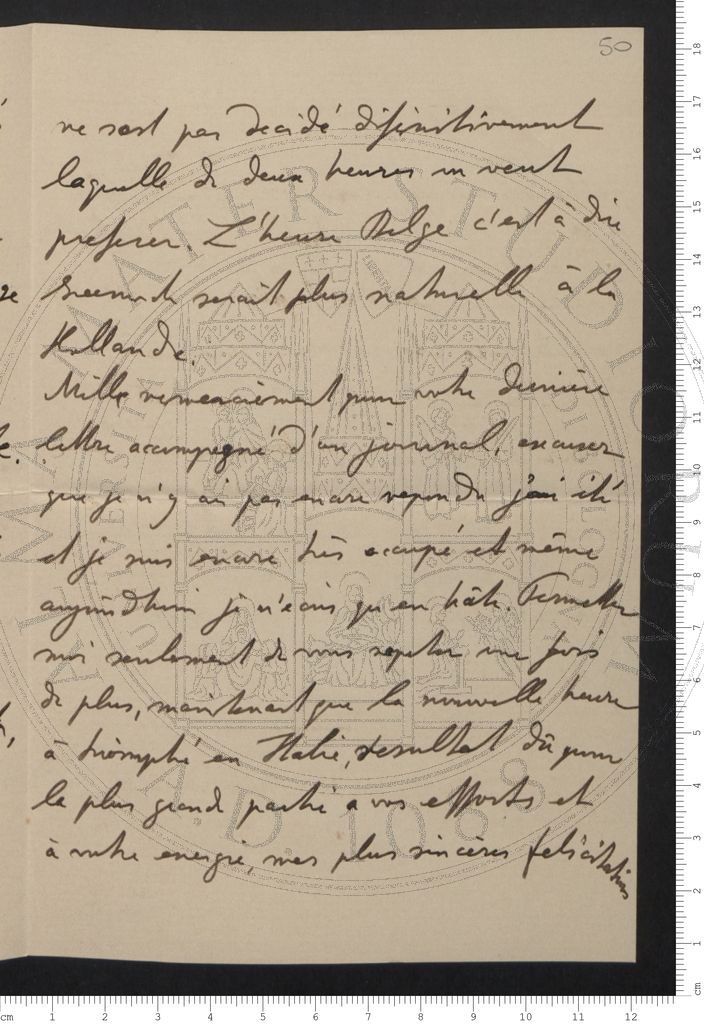 50
ne s'est pas decidé difinitivement
laquelle de deux heures on veut
preferer. L'heure Belge c'est à dire
Greenwich serait plus naturelle à la
Hollande.
Mille remerciement pour votre dernière
lettre accompagné d'un journal, excuser
que je n'y ai pas encore repondu j'ai été
et je suis encore très occupé et même
aujourdhui je n'ecris qu'en hâte. Permetter
moi seulement de vous repeter une fois
de plus, maintenant que la nouvelle heure
à triomphé en Italie, resultat dû pour
la plus grande partie a vos efforts et
à votre energie, mes plus sincères felicitations
ALMA MATER STUDIORUM
A.D. 1088
cm 1 2 3 4 5 6 7 8 9 10 11 12
18
17
16
15
14
13
12
11
10
9
8
7
6
5
4
3
2
1
cm